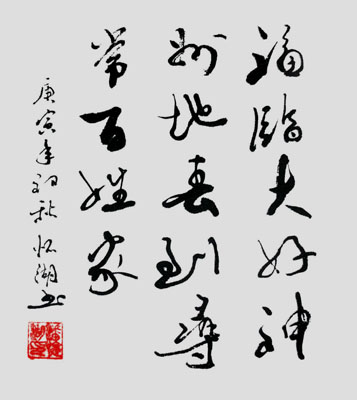 福临大好神
州地春到寻
常百姓家
庚寅年初秋怀湖书